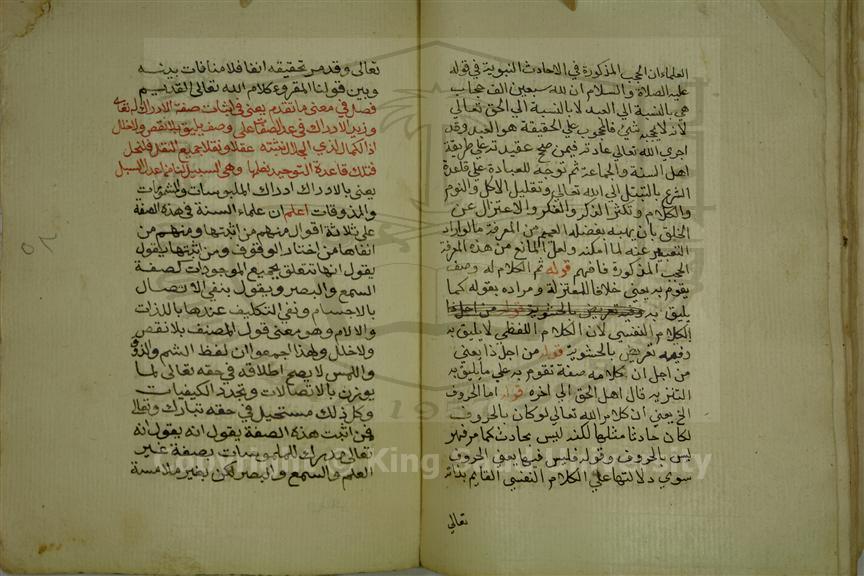 العلماء ان الحجب المذكورة في الاحاديث النبوية في قوله
عليه الصلاة والسلام ان لله سبعين الف حجاب
هي بالنسبة الي العبد لا بالنسبة الي الحق تعالي
لانه لا يحجبه شيء فالمحجوب علي الحقيقة هو العبد وقد
اجري الله تعالي عادته فيمن صح عقيدته علي طريقة
اهل السنة والجماعة ثم توجه للعبادة علي قاعدة
الشرع بالتبتل الي الله تعالي وتقليل الاكل والنوم
والكلام وتكثير الذكر والفكر والاعتزال عن
الخلق بان يهبه بفضله العميم من المعرفة ما لو اراد
التعبير عنه لما أمكنه ولعل المانع من هذه المعرفة
الحجب المذكورة فافهم قوله ثم الكلام له وصف
يقوم به يعني خلافا للمعتزلة ومراده بقوله كما
يليق به
الكلام النفسي لان الكلام اللفظي لا يليق به
وفيه تعريض بالحشوية قوله من اجل ذا يعني
من اجل ان كلامه صفة تقوم به علي ما يليق به
التنزيه قال اهل الحق الي اخره قوله اما الحروف
الخ يعني ان كلام الله تعالي لو كان بالحروف
لكان حادثا مثلها لكنه ليس بحادث كما مر فهو
ليس بالحروف وقوله فليس فيها يعني الحروف
سوي دلالتها علي الكلام النفسي القايم بذاته
تعالي
تعالى وقد مر تحقيقه انفا فلا منافات بينه
وبين قولنا المقروء كلام الله تعالى القديم
فصل في معنى ما تقدم يعني في اثبات صفة الادراك له تعالى
وزيد الادراك في عد الصفات على وصف يليق بلا نقص ولا خلل
اذ الكمال لذي الجلال نثبته عقلا ونقلا
فتلك قاعدة التوحيد وهي السبيل
يعني بالادراك ادراك الملبوسات والمشمومات
والمذوقات اعلم ان علماء السنة في هذه الصفة
على ثلاثة اقوال منهم من اثبتها ومنهم من
انفاها من اختار الوقوف ومن اثبتها يقول
يقول انها تتعلق بجميع الموجودات كصفة
السمع والبصر ويقول بنفي الاتصال
بالاجسام ونفي التكليف عندها بالذات
والالام وهو معنى قول المصنف بلا نقص
ولا خلل ولهذا اجمعوا ان لفظ الشم والذوق
واللمس لا يصح اطلاقه في حقه تعالى لما
يوزن بالاتصالات وتجدد الكيفيات
وكل ذلك مستحيل في حقه تبارك وتعالى
فمن اثبت هذه الصفة يقول انه يقول انه
تعالى مدرك للملموسات بصفة غير
العلم والسمع والبصر لكن بغير ملامسة